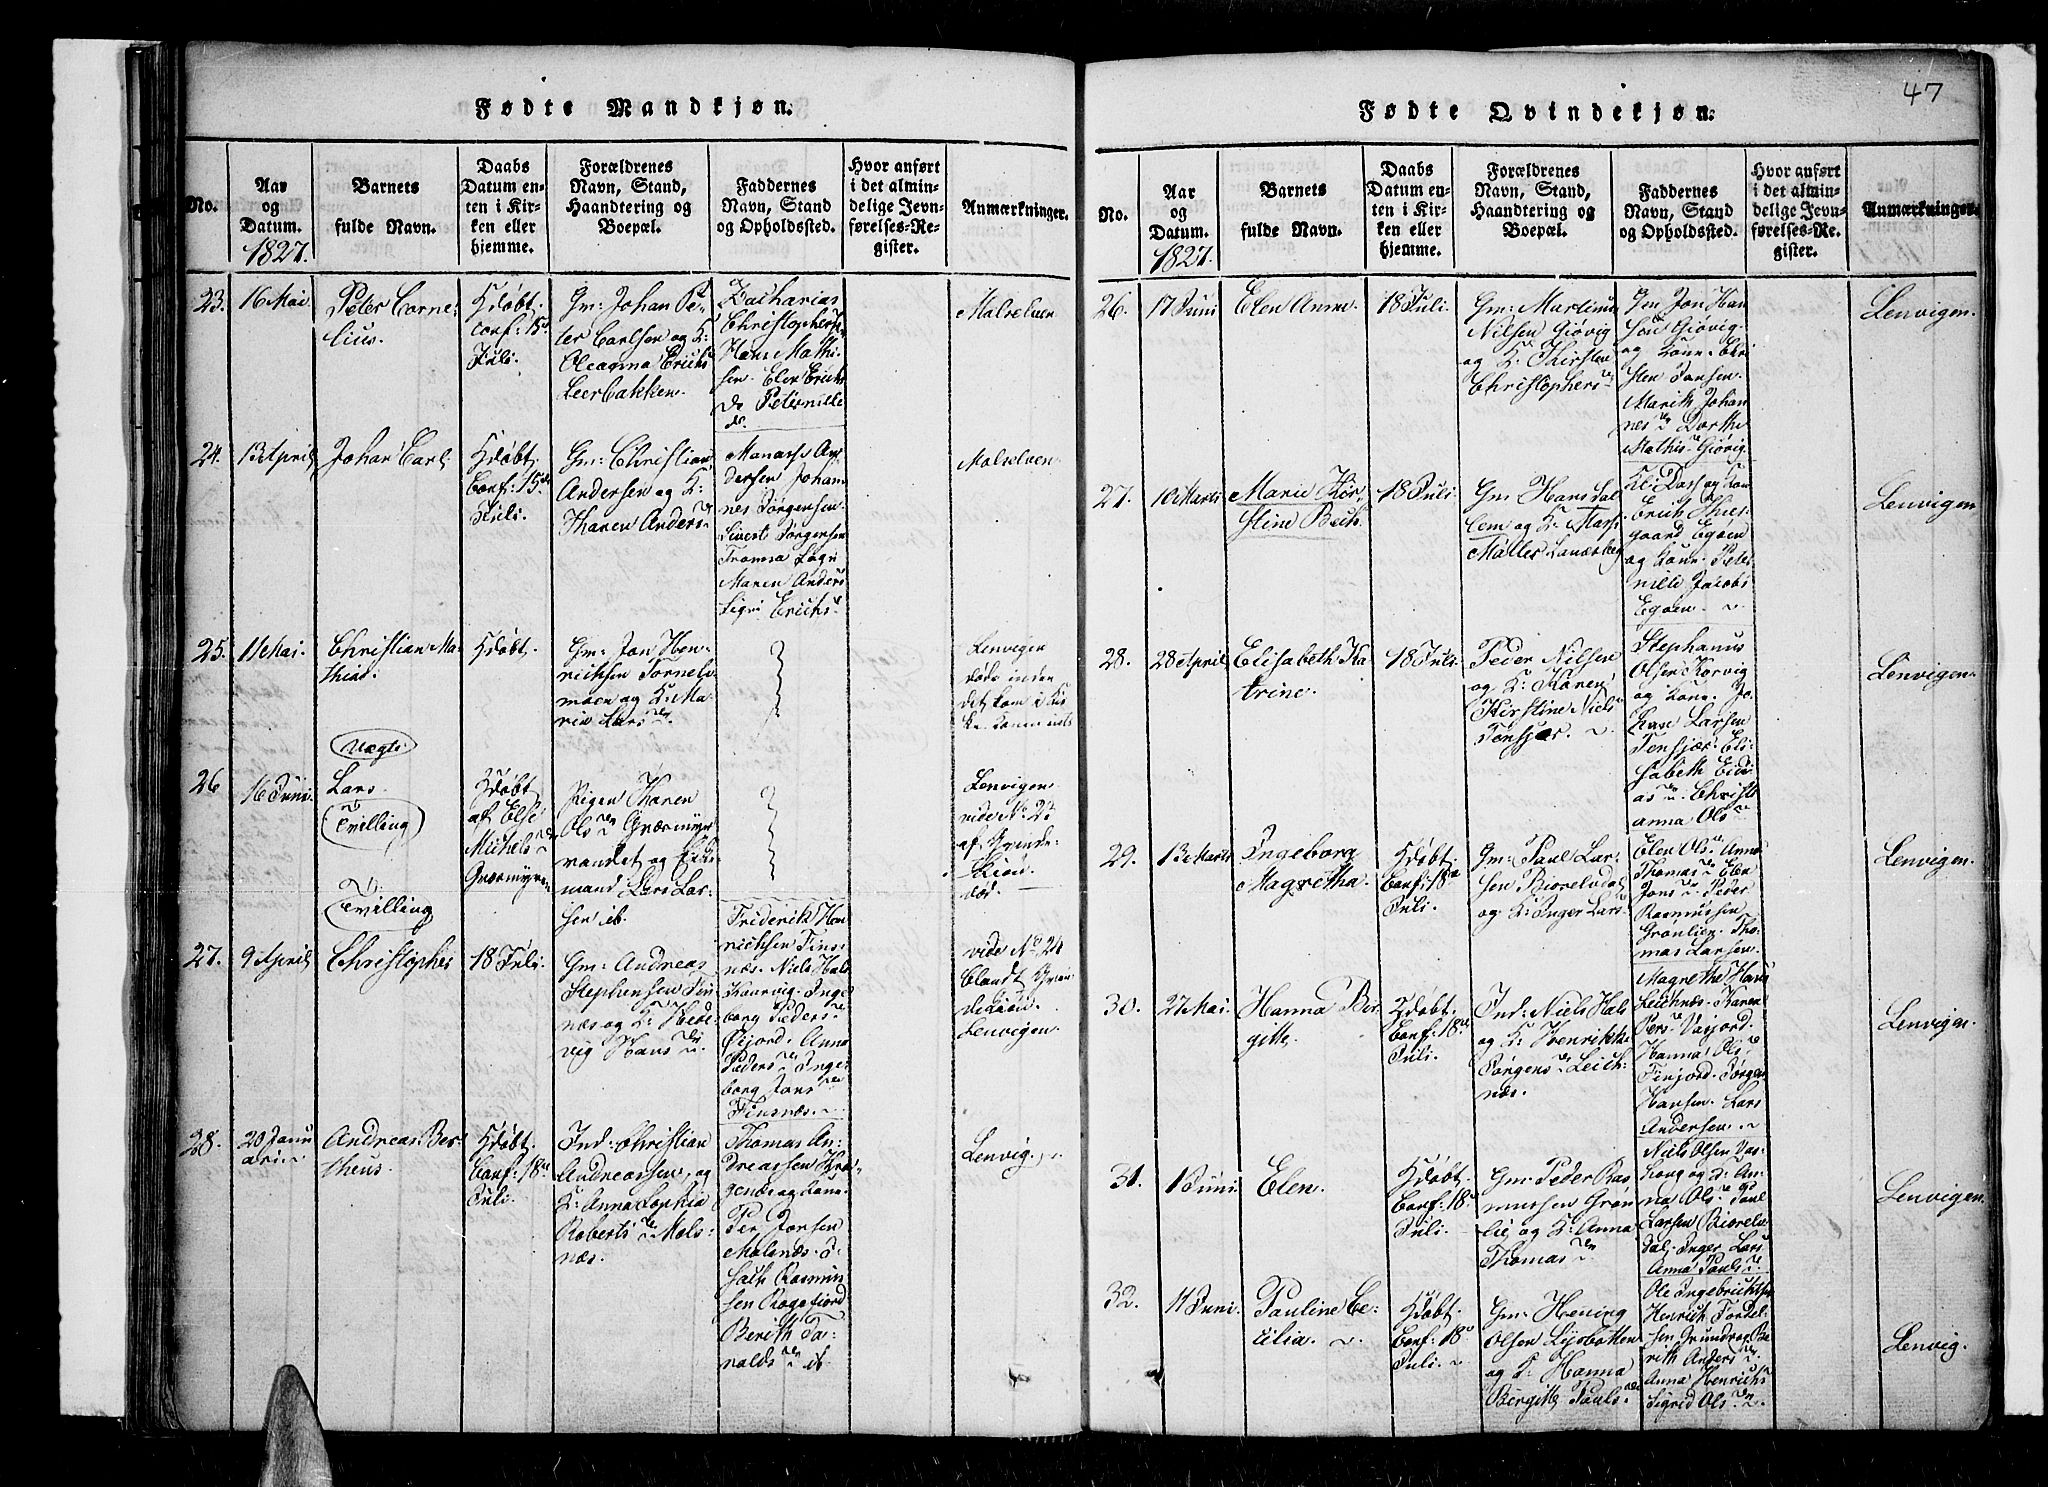 47
Fødte Mandkjøn.
No.
Aar
og
Datum.
1827.
Barnets
fulde Navn.
Daabs
Datum en-
ten i Kir-
ken eller
hjemme.
Forældrenes
Navn, Stand,
Haandtering og
Boepæl.
Faddernes
Navn, Stand
og Opholdssted.
Hvor anført
i det almin-
delige Jevn-
førelses-Re-
gister.
Anmærkninger.
23.
16 Mai
Peter Corne-
lius.
Hdøbt.
Conf: 15de
Juli.
Gm: Johan Pe-
ter Carlsen og K:
Oleanna Erichs
Leerbakken.
Zacharias
Christophersen
Hans Mathi-
sen. Elen Erichs
do Peternille
do.
Malselven
24.
13 April
Johan Carl
Hdøbt.
Conf: 15de
Juli.
Gm: Christian
Andersen og K:
Maren Anders
Manasse An-
dersen Johan-
nes Jørgensen
Sivert Jørgensen
Maren Anders
Sigri Erichs
Malselven
25.
11 Mai
Christian Ma-
thias.
Hdøbt.
Gm: Jon Hen-
richsen
moen og K: Ma-
rie Lars
Lenvigen
døde inden
det kom i Kir-
ke
Uægte
26
16 Juni
Lars
Tvilling
Hdøbt
af Else
Michels
Grasmyren
Pigen Maren
Ols Grasmyr
og
mand Lars Lar-
sen ib.
Lenvigen
vide No 23
af Qvinde-
Kiøn
død
27.
9 April
Tvilling
Christopher
18 Juli.
Gm: Andreas
Stephensen Fin-
næs og K: Hede-
vig Hans
Friderik Hen-
richsen Fins-
næs. Niels Hals
Kaarvig. Inge-
borg Peders
Øijord. Anne
Peders Inge-
borg Jons
Finsnæs.
vide No 24
blandt Qvin-
dekiøn
Lenvigen
28.
20 Janu-
ari
Andreas Ber-
theus.
Hdøbt.
Conf: 18de
Juli.
Ind: Christian
Andreassen og
K: Anna Sophia
Roberts Mals-
næs.
Thomas An-
dreassen
og Kone
Per Jonsen
Malsnæs.
Rasmus-
sen Rossfiord
Berith
nalds ib
Lenvig.
Fødte Qvindekjøn.
No.
Aar
og
Datum.
1827.
Barnets
fulde Navn.
Daabs
Datum en-
ten i Kir-
ken eller
hjemme.
Forældrenes
Navn, Stand,
Haandtering og
Boepæl.
Faddernes
Navn, Stand
og Opholdssted.
Hvor anført
i det almin-
delige Jevn-
førelses-Re-
gister.
Anmærkninger.
26.
17 Juni
Elen Anna
18 Juli.
Gm: Martinus
Nilsen Giøvig
og K: Kirsten
Christophers
Gm Jon Han-
sen Giøvig
og Kone. Chri-
sten Jansen
Marith Johan-
nes Dorthe
Mathis Giøvig.
Lenvigen.
27.
16 Marts
Marie Kir-
stine Bech.
18 Juli.
Gm: Hans Dal
og K: Maren
Møller
Eli Dass og Kone
Erich
gaard Egøen
og Kone. Peter-
nille Jacobs
Egøen.
Lenvigen
28.
28 April
Elisabeth Ka-
trine.
18 Juli.
Peder Nilsen
og K: Karen
Kirstine Niels
Tensjær.
Stephanus
Olsen Korvig
og Kone. Jo-
han Larsen
Tensjær. Eli-
sabeth
Christi-
anna Ols
Lenvigen.
29.
13 Marts
Ingeborg
Magretha.
Hdøbt.
Conf: 18de
Juli.
Gm: Paul Lar-
sen Biorelvdal
og K: Inger Lars
Elen Ols Anna
Thomas Elen
Jons Peder
Rasmussen
Grønlien. Tho-
mas Larsen.
Lenvigen.
30.
27 Mai.
Hanna Bir-
gitte.
Hdøbt
Conf: 18de
Juli.
Ind: Niels Hals
og K: Henrikke
Jørgens Leich-
næs.
Magrethe Hans
Leichnæs. Karen
Pers Vajord.
Hanna Ols
Finjord. Jørgen
Hansen. Lars
Andersen.
Lenvigen.
31.
1 Juni
Elen.
Hdøbt
Conf: 18de
Juli.
Gm: Peder Ras-
mussen Grøn-
lie og K: Anna
Thomas
Niels Olsen Vas-
houg og K: An-
na Ols Paul
Larsen Biorelv-
dal. Inger Lars
Anna Pauls
Lenvigen
32.
11 Juni.
Pauline Ce-
cilia.
Hdøbt.
Conf: 18de
Juli.
Gm: Hening
Olsen Lysbotten
og K: Hanna
Bergitte Pauls
Ole Ingebrichtsen
Henrich Tordel-
sen Be-
rith Anders
Anna Henrichs
Sigrid Ols
Lenvig.